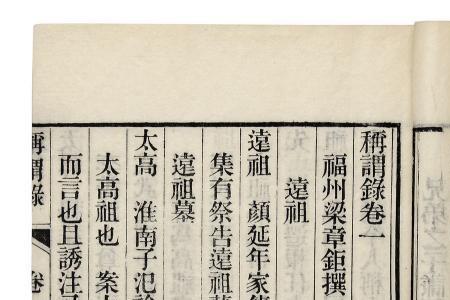 稱謂錄卷一
福州梁章鉅撰
遠祖
遠祖 顏延年家
集有祭告遠祖
遠祖墓
太高 淮南子氾
太高祖也 案
而言也且誘注
稱謂錄 卷